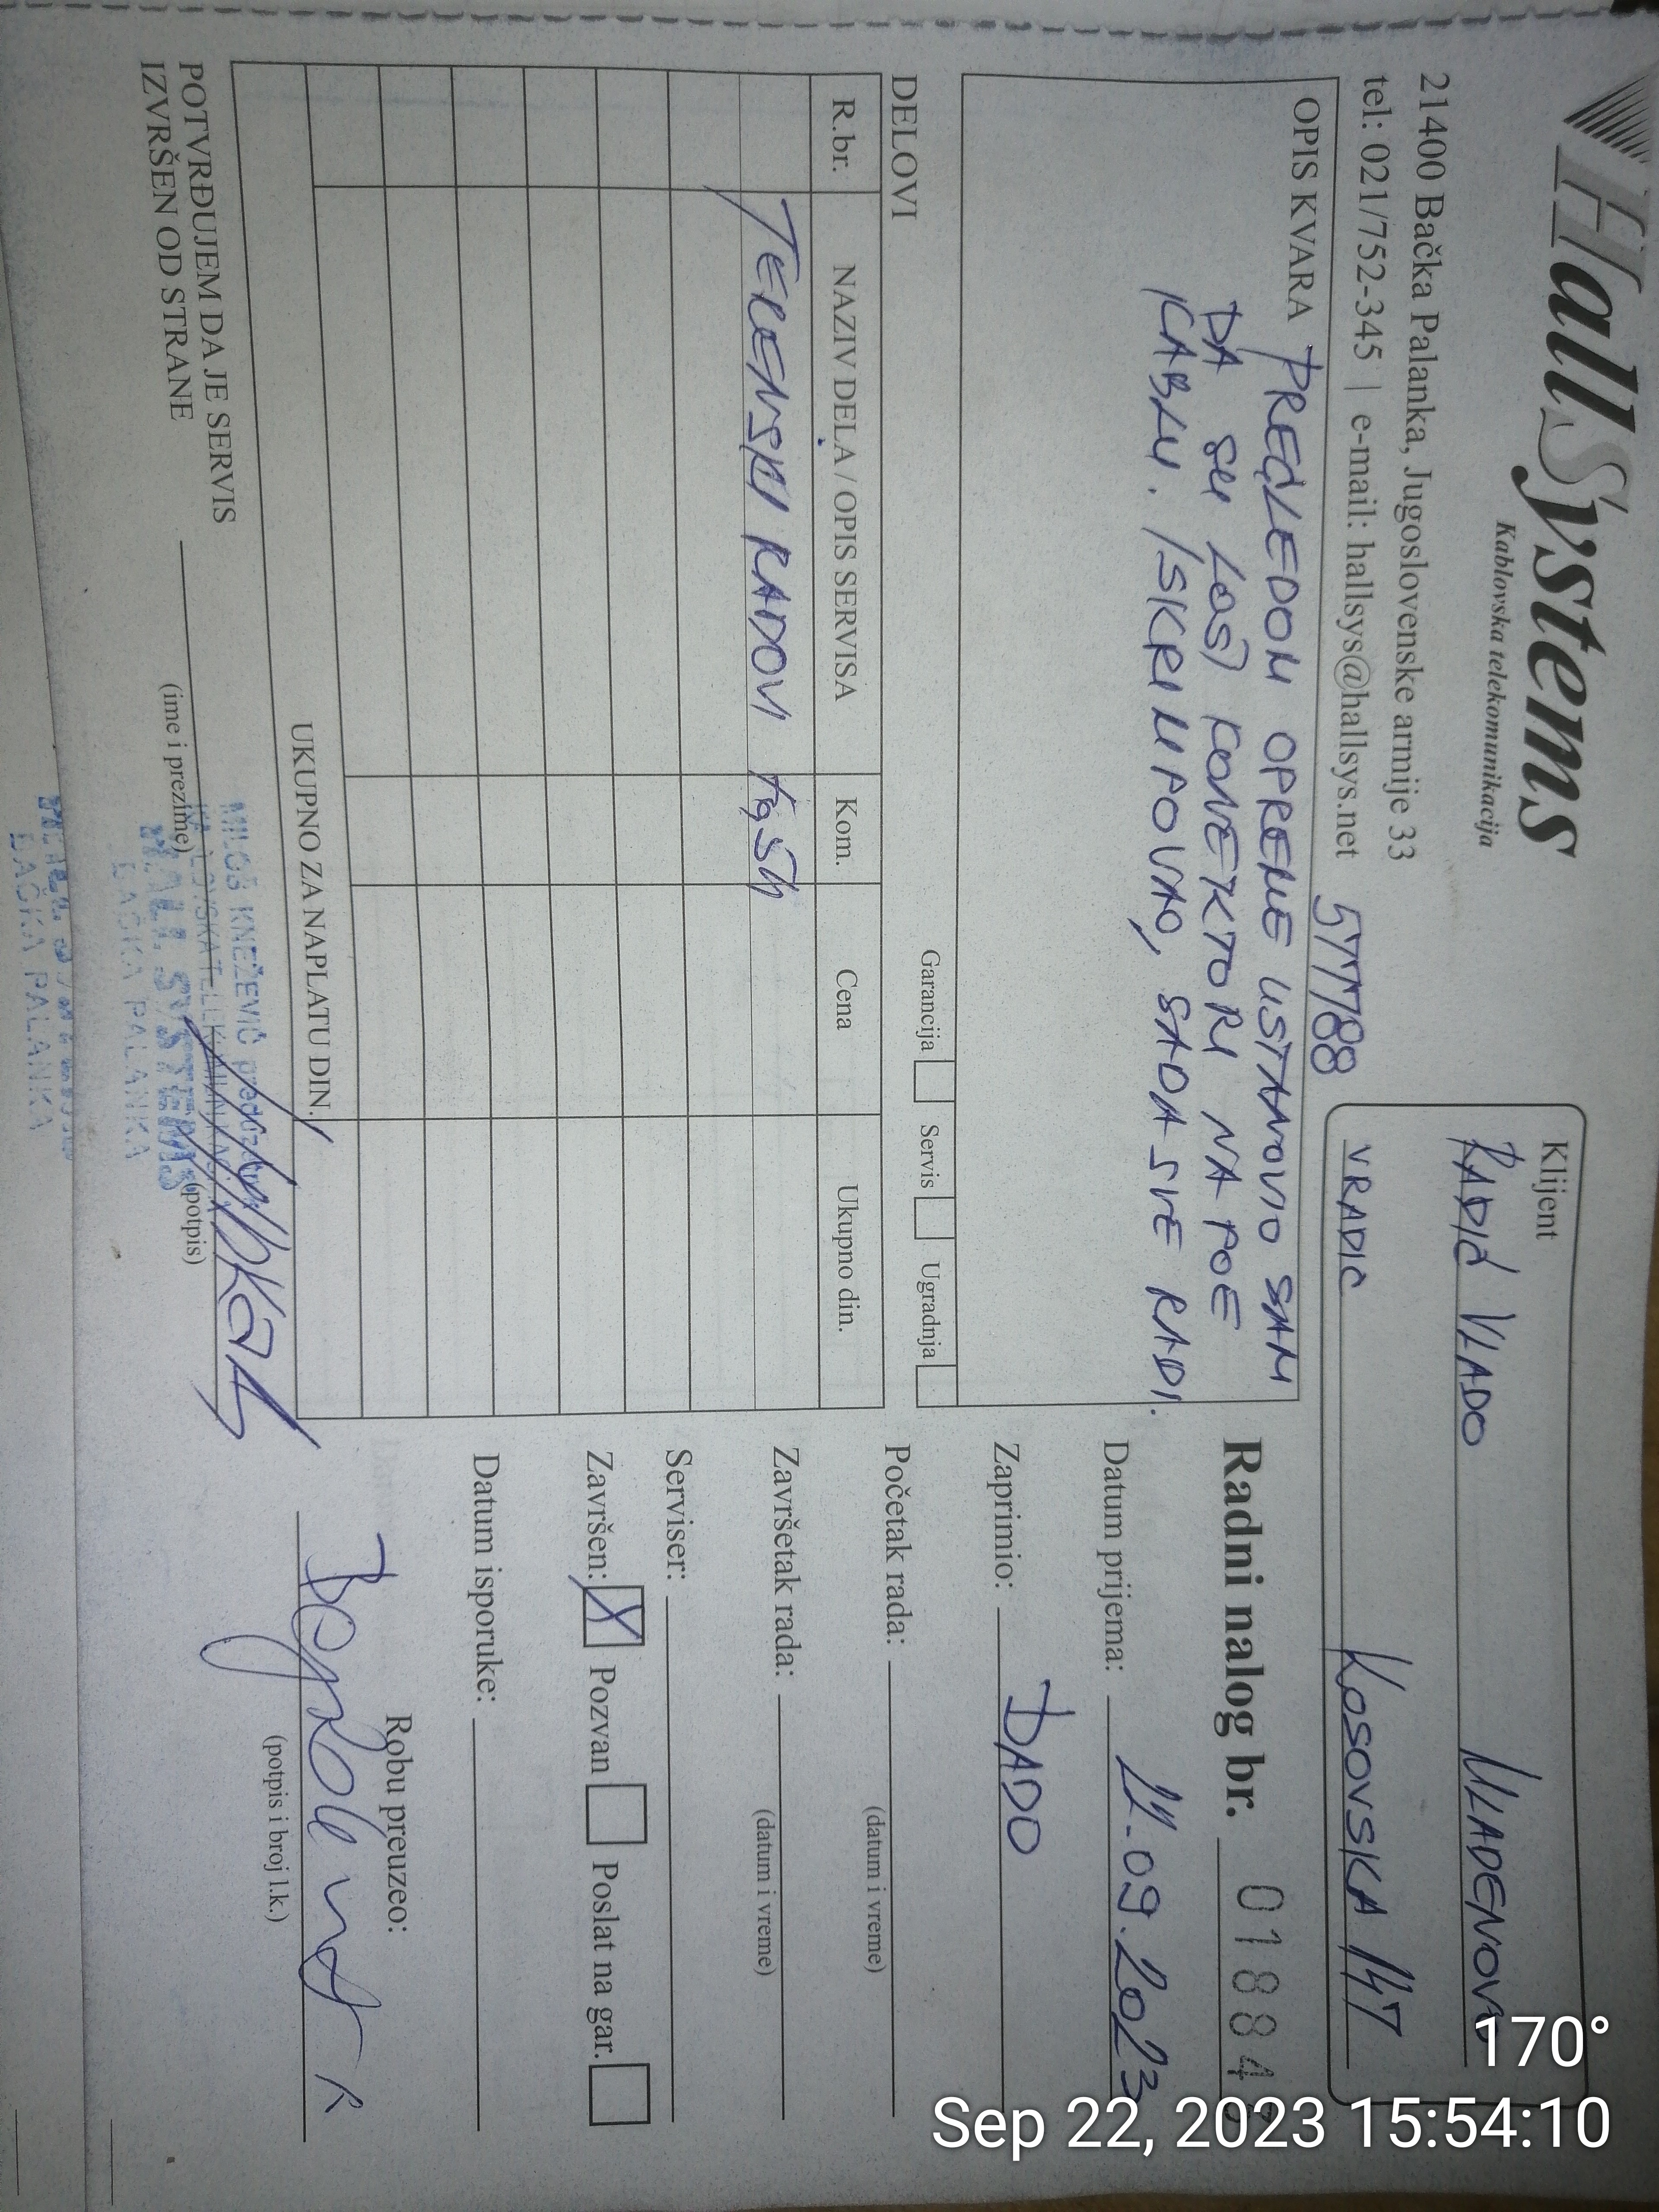 HallSystems
Kablovska telekomunikacija
21400 Bačka Palanka, Jugoslovenske armije 33
tel: 021/752-345 | e-mail: hallsys@hallsys.net
577788
Klijent
RADIĆ VLADO MLADENOVO
VRADIC KOSOVSKA 147
OPIS KVARA PREGLEDOM OPREME USTANOVIO SAM
DA SU LOŠI KONEKTORI NA POE
KABLU. ISKRIMPOVAO, SADA SVE RADI.
Garancija Servis Ugradnja
DELOVI
R.br. NAZIV DELA / OPIS SERVISA Kom. Cena Ukupno din.
TERENSKI RADOVI
UKUPNO ZA NAPLATU DIN.
POTVRĐUJEM DA JE SERVIS
IZVRŠEN OD STRANE
(ime i prezime) (potpis)
MILOŠ KNEŽEVIĆ
HALL SYSTEMS
BAČKA PALANKA
BAČKA PALANKA
Radni nalog br. 0184
Datum prijema: 11.09.2023
Zaprimio: DADO
Početak rada:
(datum i vreme)
Završetak rada:
(datum i vreme)
Serviser:
Završen: X Pozvan Poslat na gar.
Datum isporuke:
Robu preuzeo:
(potpis i broj l.k.)
170°
Sep 22, 2023 15:54:10